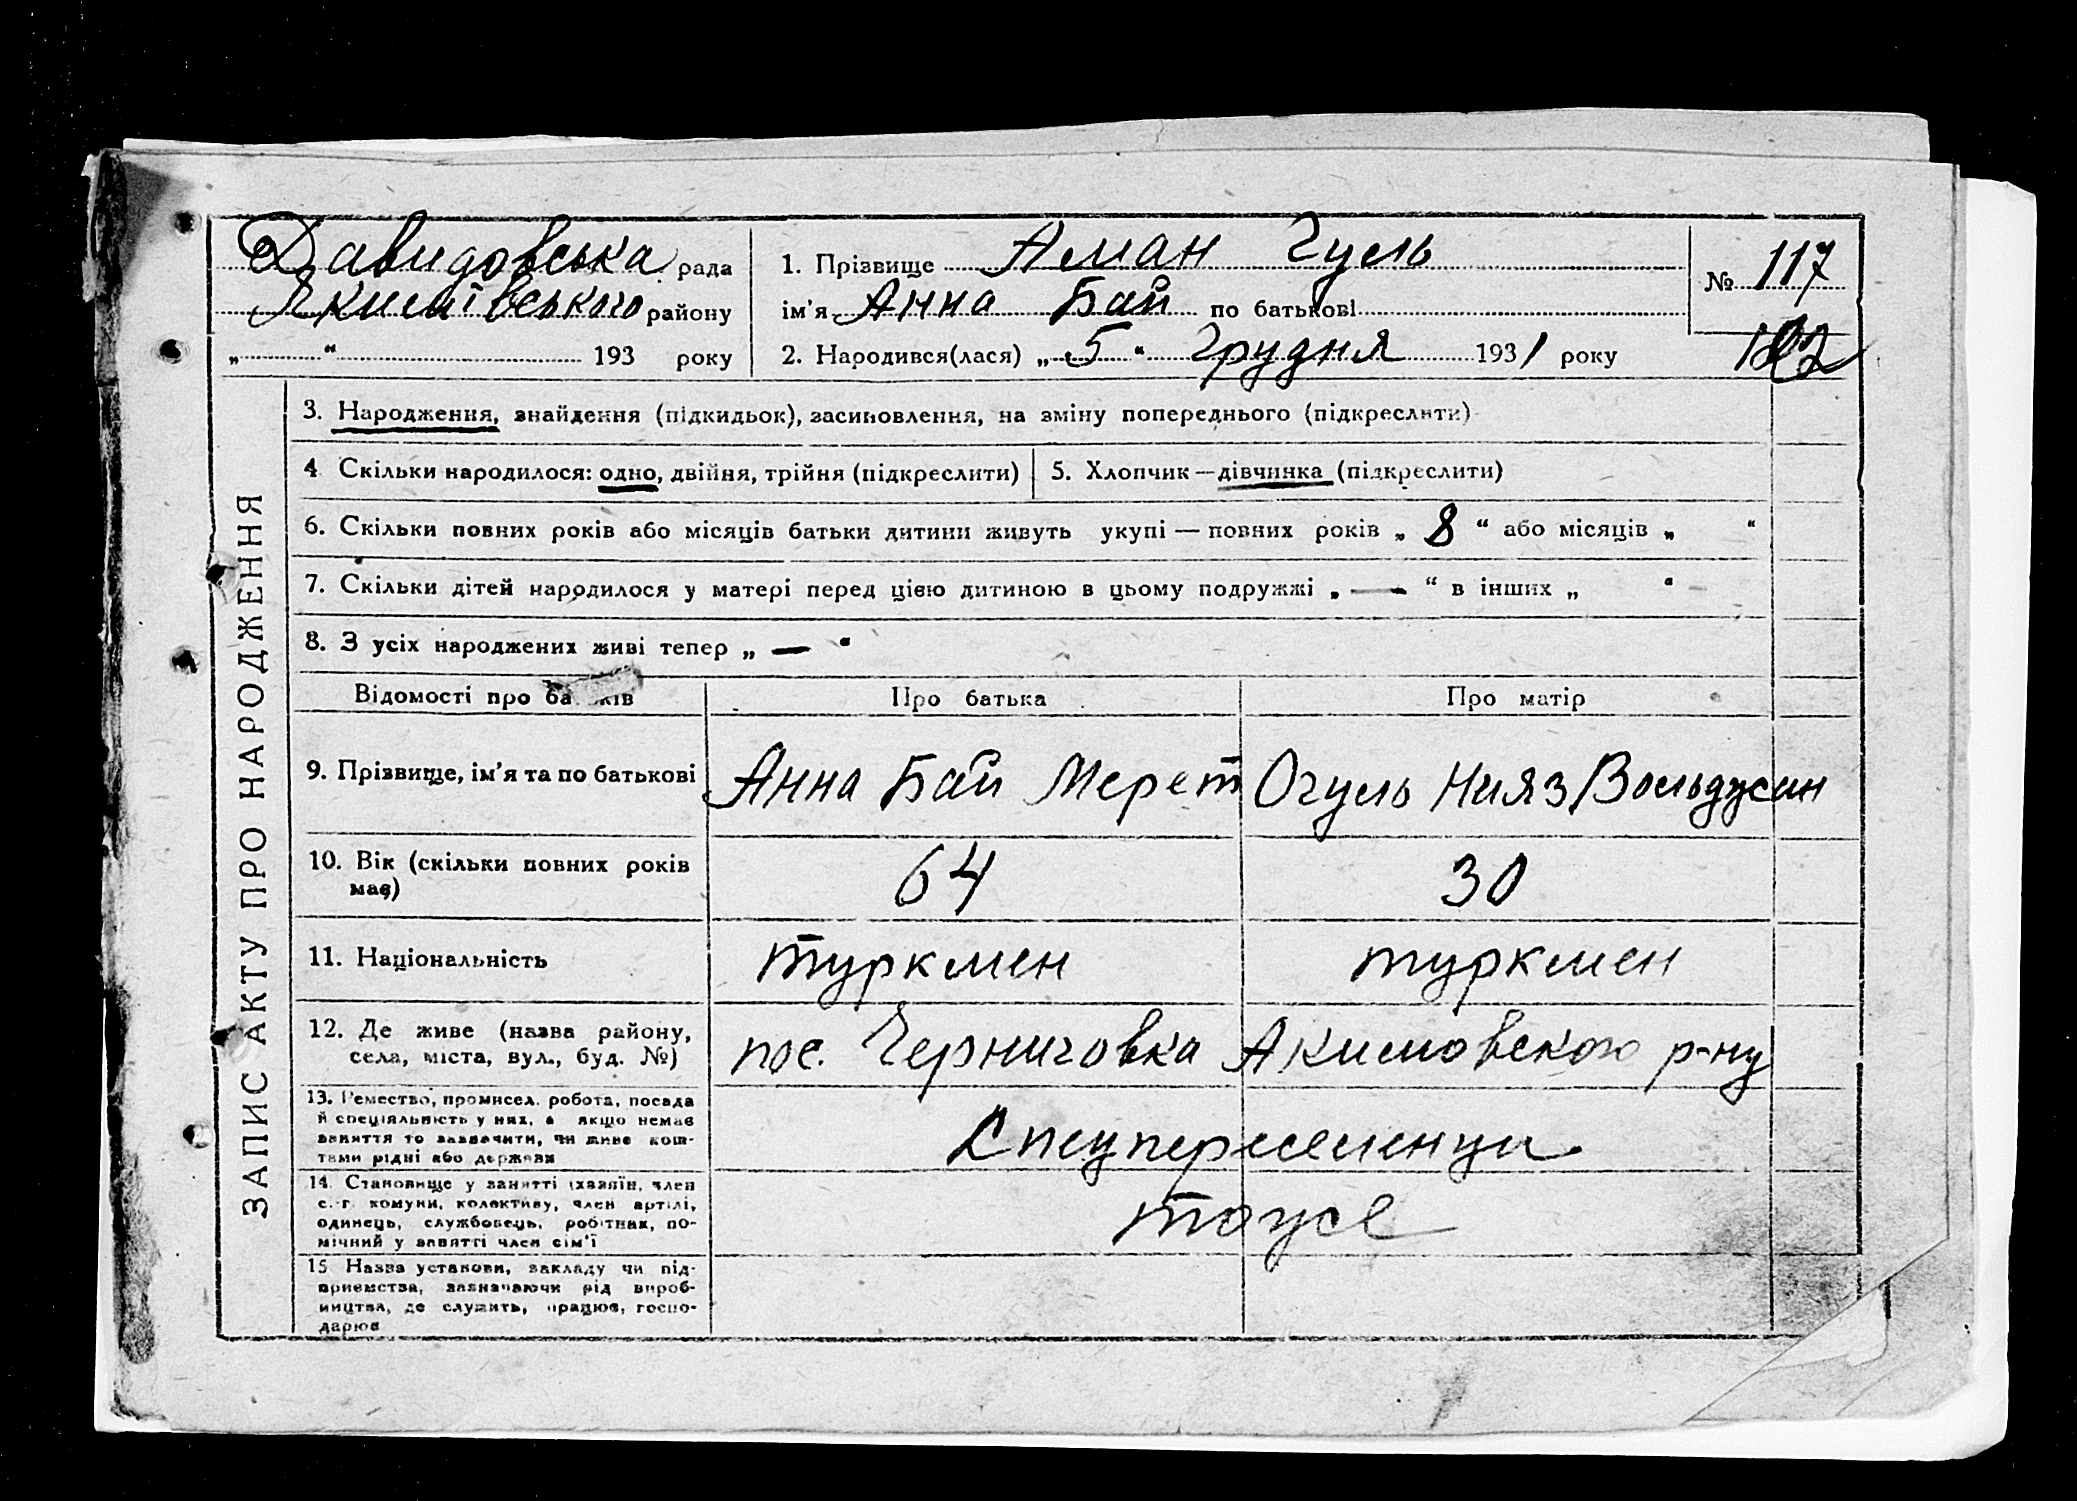 Давидовська рада
Якимівського району
„ “ 193 року
1. Прізвище Аман Гуль
ім'я Анна Бай по батькові
2. Народився(лася) „ 5 “ Грудня 1931 року
№ 117
ЗАПИС АКТУ ПРО НАРОДЖЕННЯ
3. Народження, знайдення (підкидьок), засиновлення, на зміну попереднього (підкреслити)
4 Скільки народилося: одно, двійня, трійня (підкреслити)
5. Хлопчик — дівчинка (підкреслити)
6. Скільки повних років або місяців батьки дитини живуть укупі — повних років „ 8 “ або місяців „ “
7. Скільки дітей народилося у матері перед цією дитиною в цьому подружжі „ — “ в інших „ “
8. З усіх народжених живі тепер „ — “
Відомості про батьків
Про батька
Про матір
9. Прізвище, ім'я та по батькові
Анна Бай Мерет
Огуль Нияз
10. Вік (скільки повних років
має)
64
30
11. Національність
туркмен
туркмен
12. Де живе (назва району,
села, міста, вул., буд. №)
пос. Черниговка Акимовского р-ну
13. Ремество, промисел, робота, посада
й спеціяльність у них, а якщо немає
заняття то зазначити, чи живе кош-
тами рідні або держави
Спецпереселенци
14. Становище у занятті (хазяїн, член
с.-г. комуни, колективу, член артілі,
одинець, службовець, робітник, по-
мічний у занятті член сім'ї
тоусе
15 Назва установи, закладу чи під-
приємства, зазначаючи рід вироб-
ництва, де служить, працює, госпо-
дарює